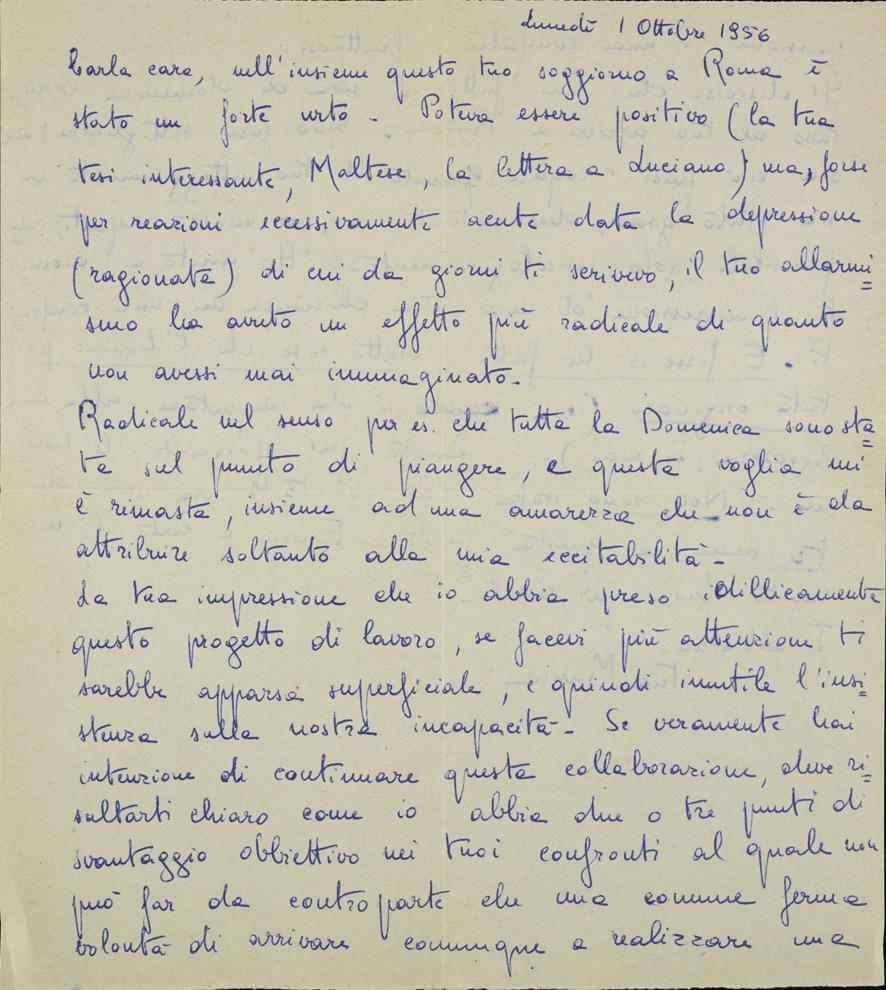 Lunedì 1 Ottobre 1956
Carla cara, nell'insieme questo tuo soggiorno a Roma è
stato un forte urto - Poteva essere positivo (la tua
tesi interessante, Maltese, la lettera a Luciano) ma, forse
per reazioni eccessivamente acute data la depressione
(ragionata) di cui da giorni ti scrivevo, il tuo allarmi=
smo ha avuto un effetto più radicale di quanto
non avessi mai immaginato.
Radicale nel senso per es. che tutta la Domenica sono sta=
ta sul punto di piangere, e questa voglia mi
è rimasta, insieme ad una amarezza che non è da
attribuire soltanto alla mia eccitabilità -
La tua impressione che io abbia preso idillicamente
questo progetto di lavoro, se facevi più attenzione ti
sarebbe apparsa superficiale, e quindi inutile l'insi=
stenza sulla nostra incapacità - Se veramente hai
intenzione di continuare questa collaborazione, deve ri=
sultarti chiaro come io abbia due o tre punti di
svantaggio obbiettivo nei tuoi confronti al quale non
può far da controparte che una comune ferma
volontà di arrivare comunque a realizzare una